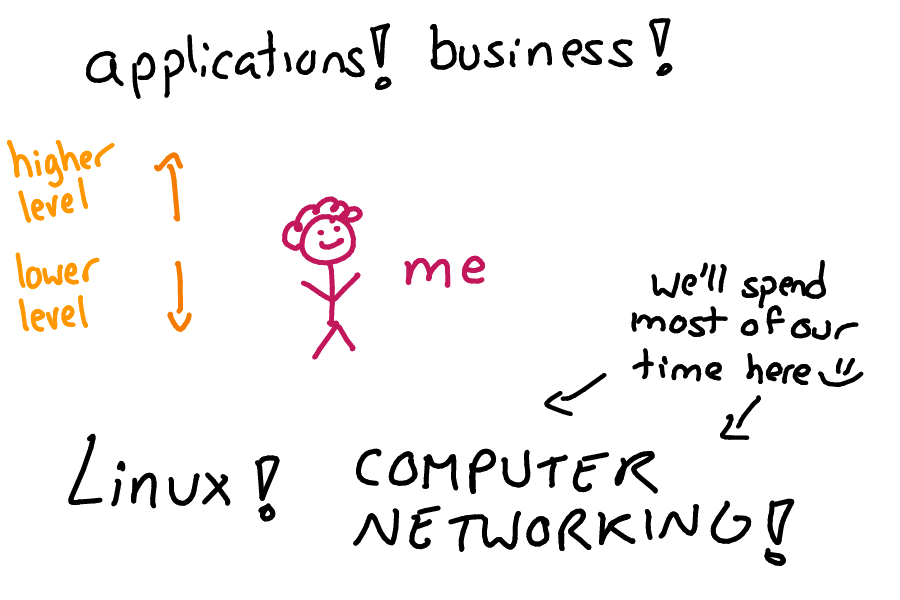 applications! business!
higher
level
lower
level
me
we'll spend
most of our
time here
Linux!
COMPUTER
NETWORKING!